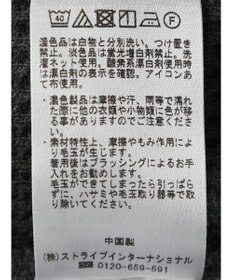 40
F
濃色品は白物と分別洗い。つけ置き
禁止。淡色品は蛍光増白剤禁止。洗
濯ネット使用。酸素系漂白剤使用時
は漂白剤の表示を確認。アイロンあ
て布使用。
・濃色製品は摩擦や汗、雨等で濡れ
た際に他の衣類や小物類に色が移
る恐れがあります。
・素材特性上、摩擦やもみ作用によ
り毛玉が生じます。
着用後はブラッシングによるお手
入れをお勧めします。
毛玉ができてしまったら引っぱら
ずに、ハサミや毛玉取り器等で取
り除いてください。
中国製
(株)ストライプインターナショナル
0120-659-591